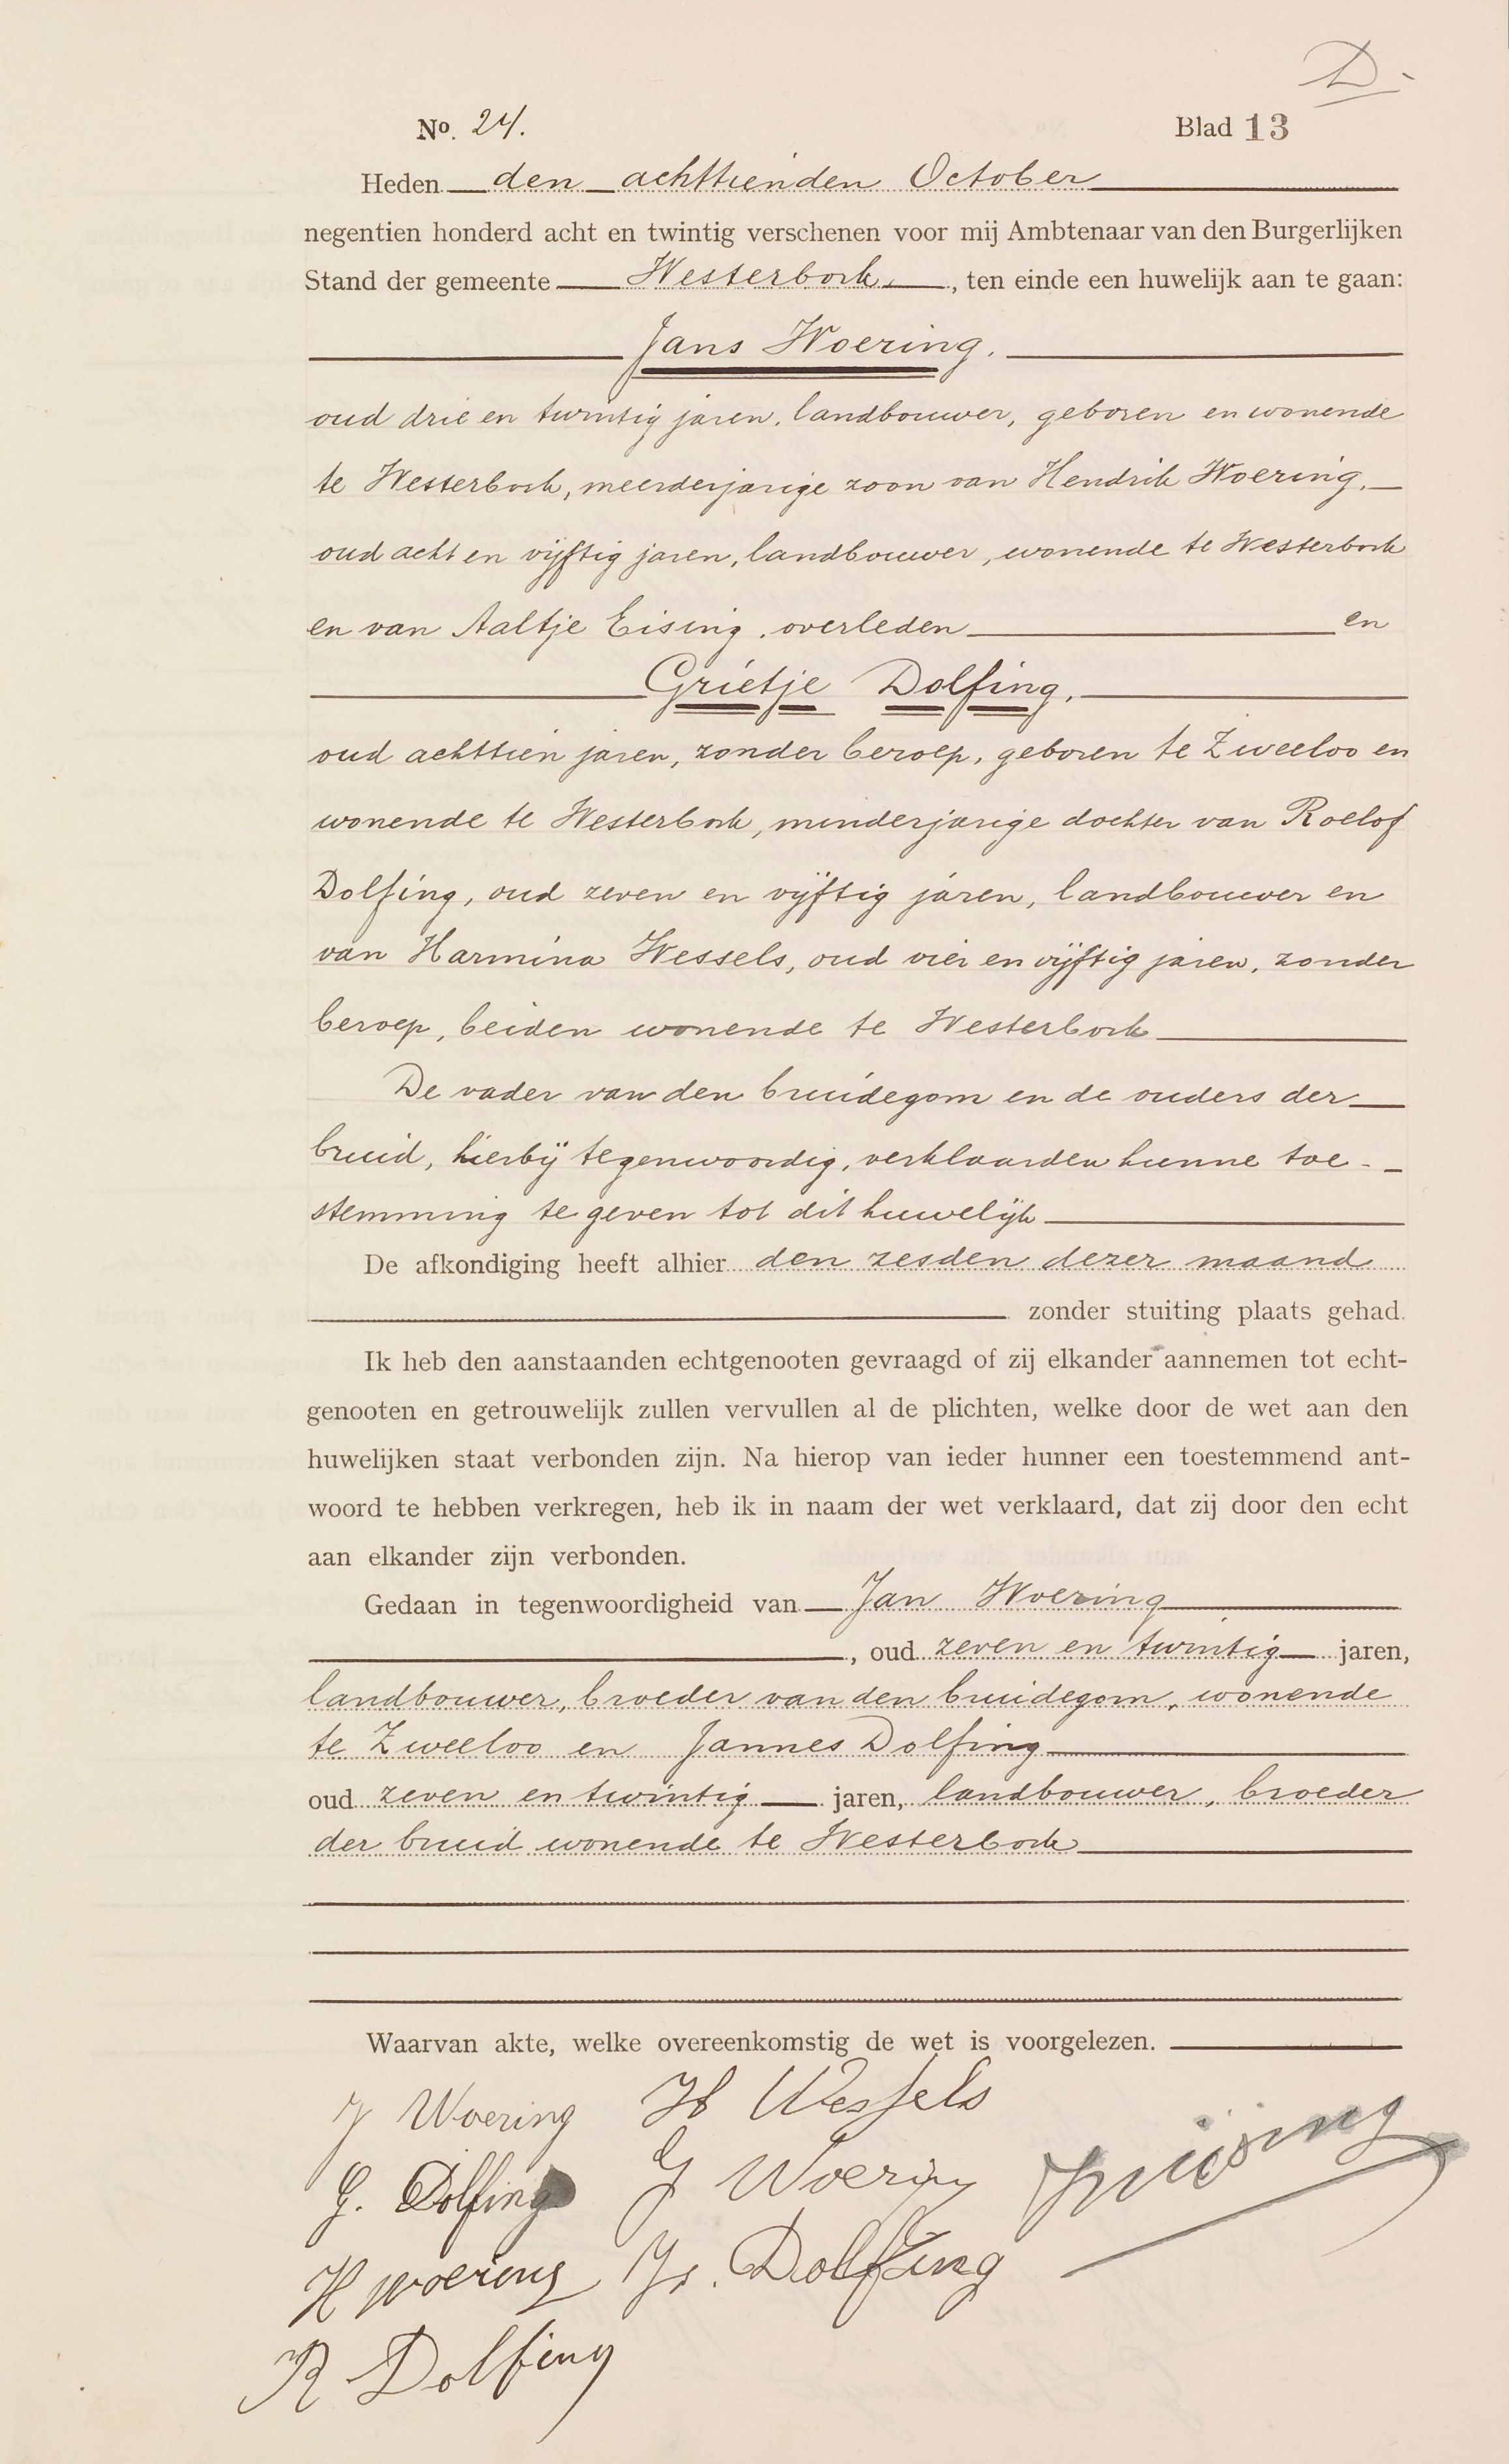 D.
No. 24.
Blad 13
Heden den achttienden October
negentien honderd acht en twintig verschenen voor mij Ambtenaar van den Burgerlijken
Stand der gemeente Westerbork, ten einde een huwelijk aan te gaan:
Jans Woering.
oud drie en twintig jaren, landbouwer, geboren en wonende
te Westerbork, meerderjarige zoon van Hendrik Woering,
oud acht en vijftig jaren, landbouwer, wonende te Westerbork
en van Aaltje Eising, overleden en
Grietje Dolfing,
oud achttien jaren, zonder beroep, geboren te Zweeloo en
wonende te Westerbork, minderjarige dochter van Roelof
Dolfing, oud zeven en vijftig jaren, landbouwer en
van Harmina Wessels, oud vier en vijftig jaren, zonder
beroep, beiden wonende te Westerbork
De vader van den bruidegom en de ouders der
bruid, hierbij tegenwoordig, verklaarden hunne toe-
stemming te geven tot dit huwelijk
De afkondiging heeft alhier den zesden dezer maand
zonder stuiting plaats gehad.
Ik heb den aanstaanden echtgenooten gevraagd of zij elkander aannemen tot echt-
genooten en getrouwelijk zullen vervullen al de plichten, welke door de wet aan den
huwelijken staat verbonden zijn. Na hierop van ieder hunner een toestemmend ant-
woord te hebben verkregen, heb ik in naam der wet verklaard, dat zij door den echt
aan elkander zijn verbonden.
Gedaan in tegenwoordigheid van Jan Woering
, oud zeven en twintig jaren,
landbouwer, broeder van den bruidegom, wonende
te Zweeloo en Jannes Dolfing
oud zeven en twintig jaren, landbouwer, broeder
der bruid wonende te Westerbork
Waarvan akte, welke overeenkomstig de wet is voorgelezen.
J Woering H Wessels
G. Dolfing J Woering
H Woering Js. Dolfing
R Dolfing